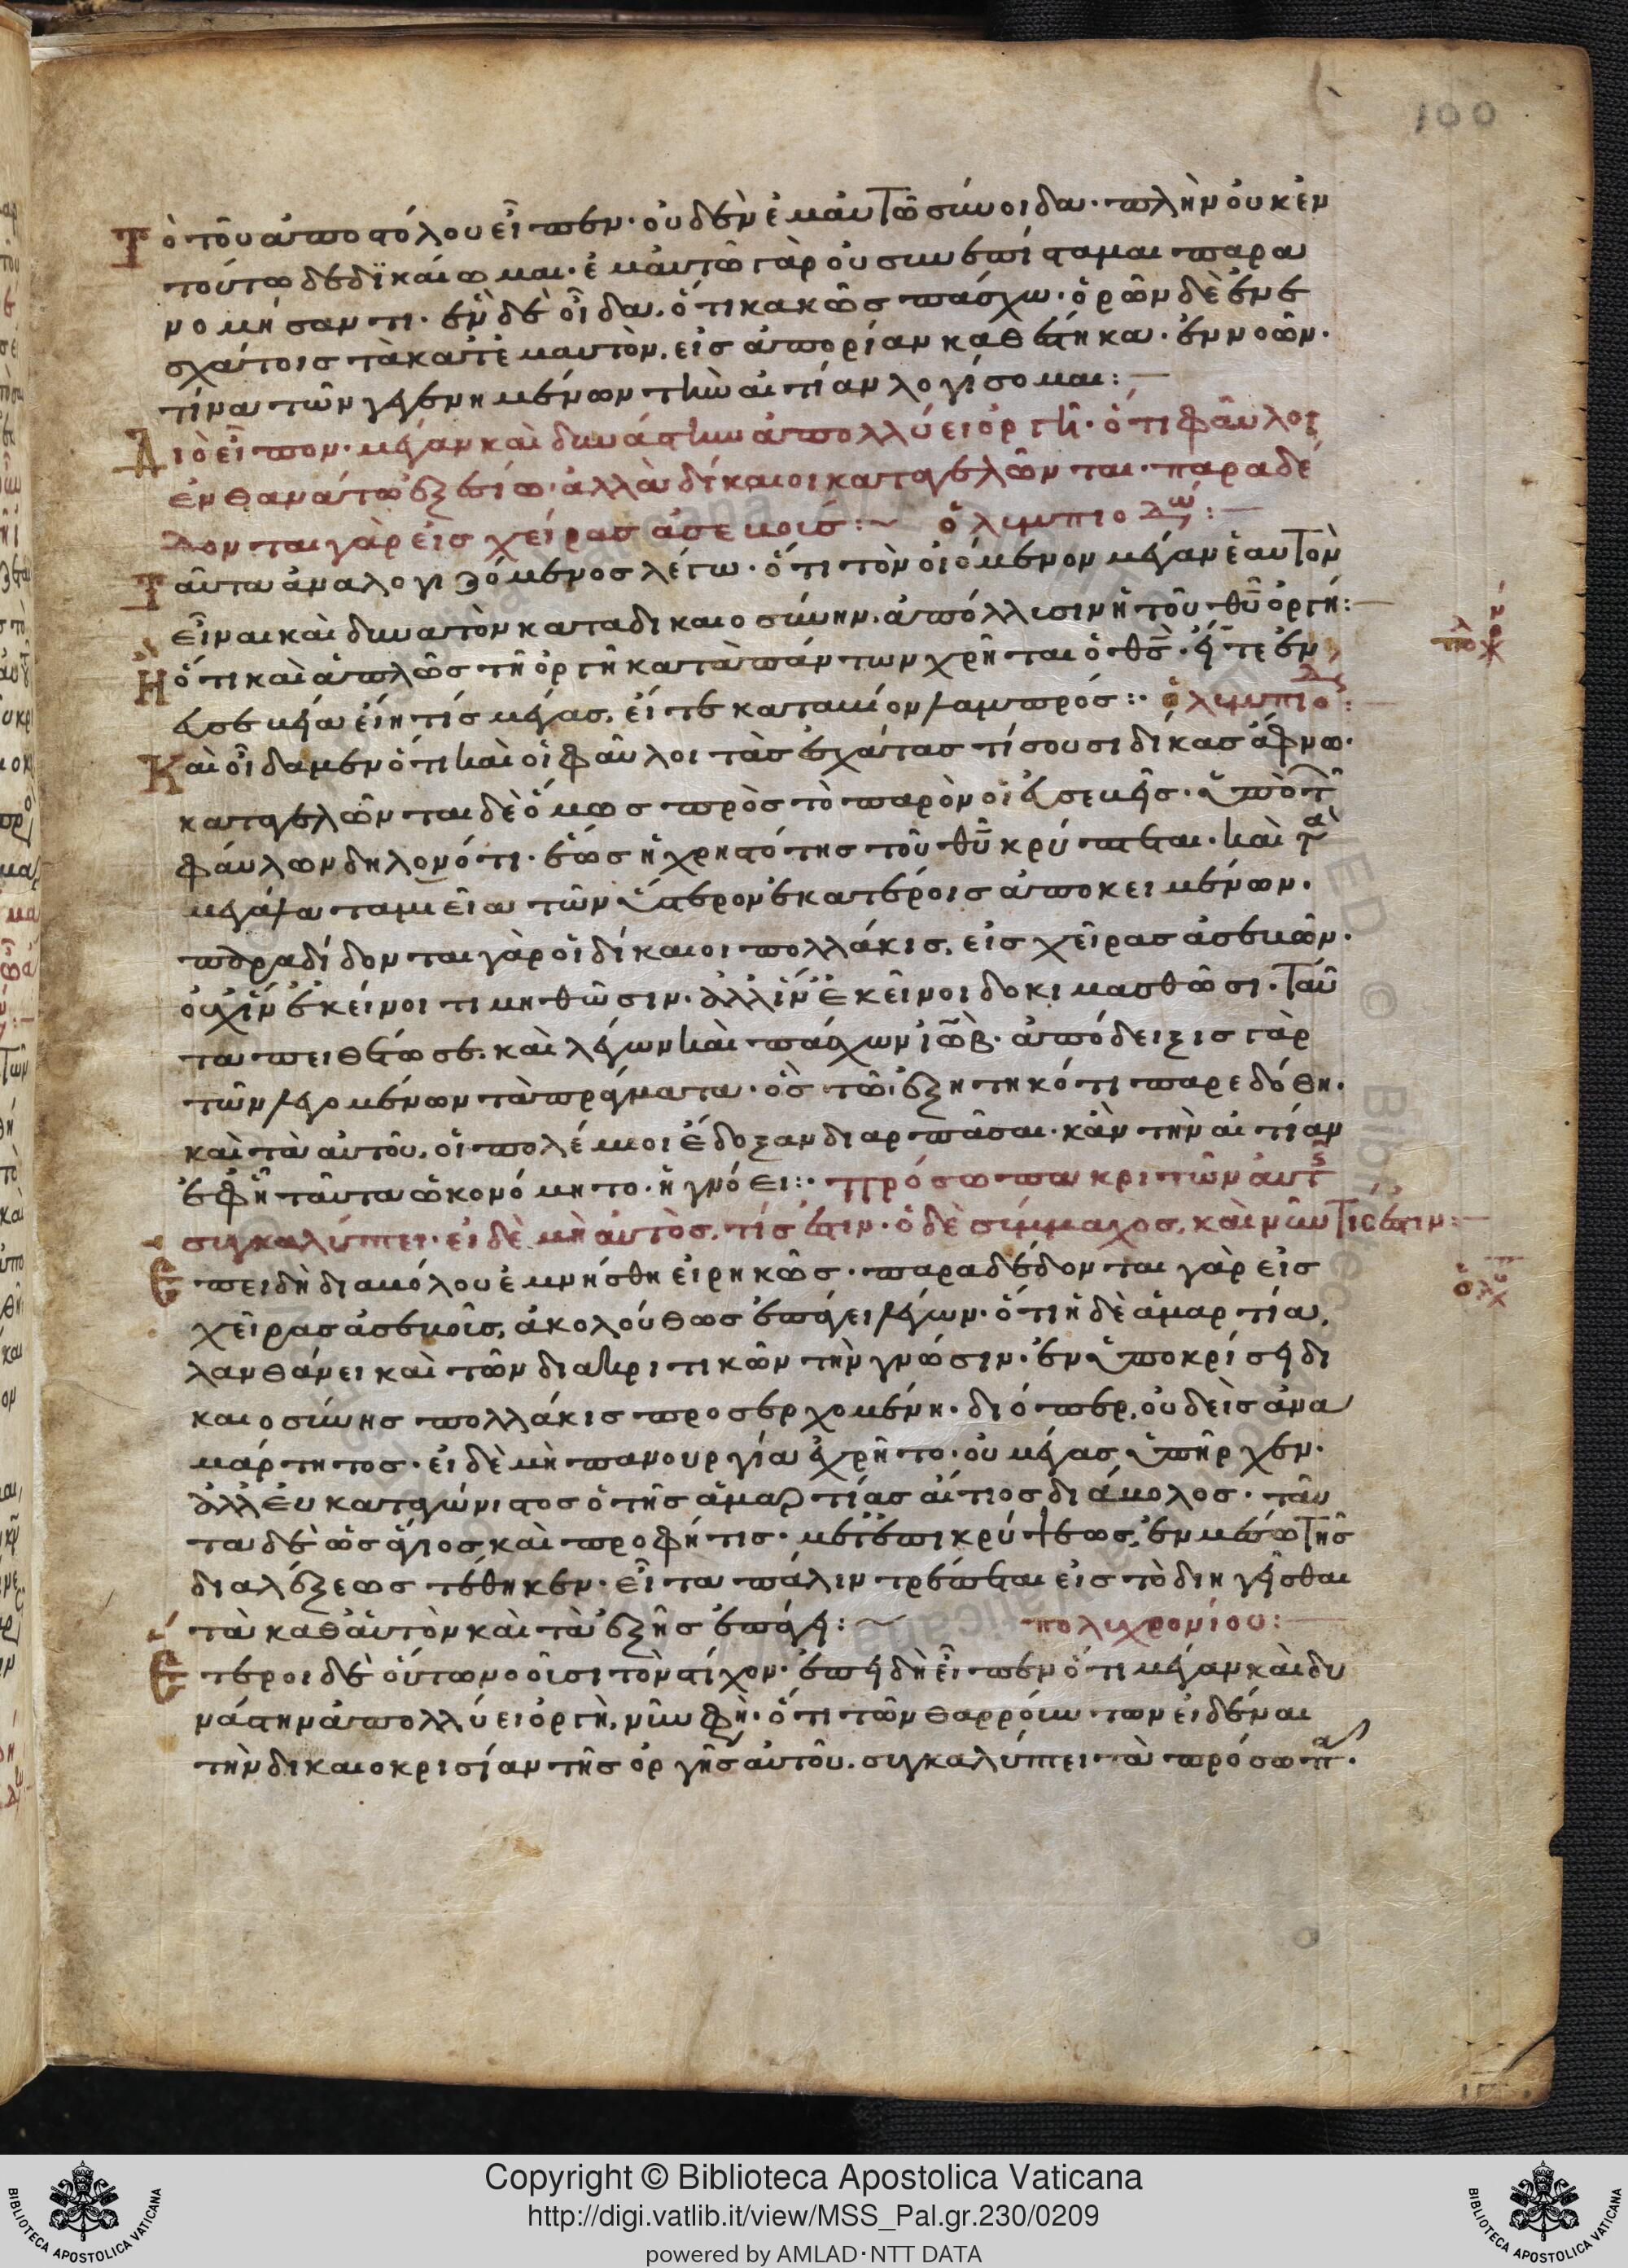 100
Τὸ τοῦ ἀποστόλου εἶπεν· οὐδὲν ἐμαυτῶ σύνοιδα· πλὴν οὐκ ἐν
τούτω δεδϊκαίωμαι· ἐμαυτῶ γὰρ οὐ συνεπίσταμαι παρα
νομήσαντι· ἓν δὲ οἶδα, ὅτι κακῶς πάσχω· ὁρῶν δὲ ἐν ἐ
σχάτοις τὰ κατ' ἐμαυτὸν, εἰς ἀπορίαν καθέστηκα· ἐννοῶν·
τίνα τῶν γεγενημένων τὴν αἰτίαν λογίσομαι:
Διὸ εἶπον· μέγαν καὶ δυνάστην ἀπολλύει ὀργή· ὅτι φαῦλοι
ἐν θανάτω ἐξαισίω· ἀλλὰ δίκαιοι καταγελῶνται· παραδέ
δονται γὰρ εἰς χεῖρας ἀσεβοῖς: ~ ὀλυμπιοδώ:
Ταῦτα ἀναλογιζόμενος λέγω· ὅτι τὸν οἰόμενον μέγαν ἑαυτὸν
εἶναι καὶ δυνατὸν κατα δικαιοσύνην, ἀπόλλυσιν ἡ τοῦ θῦ ὀργή:
πολχρον
Ἢ ὅτι καὶ ἁπλῶς τῆ ὀργῆ κατὰ πάντων χρῆται ὁ θς̄· εἴτε ἐν
εὐσεβεία εἴη τίς μέγας, εἴτε κατα βίον λαμπρός: ὀλυμπιοδ:
Καὶ οἴδαμεν ὅτι καὶ οἱ φαῦλοι τὰς ἐσχάτας τίσουσι δίκας ἄφνω·
καταγελῶνται δὲ ὅμως πρὸς τὸ παρὸν οἱ εὐσεβεῖς· ὑπὸ τ
φαύλων δηλονότι· ἕως ἡ χρηστότης τοῦ θῦ κρύπτεται· καὶ τὰ
μεγάλα ταμιεῖα τῶν ὕστερον ἑκατέροις ἀποκειμένων·
παραδίδονται γὰρ οἱ δίκαιοι πολλάκις, εἰς χεῖρας ἀσεβῶν·
οὐχ ἵν' ἐκεῖνοι τιμηθῶσιν· ἀλλ' ἵν' ἐκεῖνοι δοκιμασθῶσι· ταῦ
τα πειθέτω σε, καὶ λέγων καὶ πάσχων ἰώβ· ἀπόδειξις γὰρ
τῶν λεγομένων τὰ πράγματα· ὃς τῶ ἐξητηκότι παρεδόθη·
καὶ τὰ αὐτοῦ, οἱ πολέμιοι ἔδοξαν διαρπᾶσαι· κἂν τὴν αἰτίαν
ἐφ' ἧ ταῦτα ὠκονόμητο· ἠγνόει: πρόσωπα κριτῶν αὐτς
συγκαλύπτει· εἰ δὲ μὴ αὐτὸς, τίς ἐστιν· ὁ δὲ σύμμαχος, καὶ νῦν τίς ἐστιν:
ὀλ
Ἐπειδὴ διαβόλου ἐμνήσθη εἰρηκὼς· παραδέδονται γὰρ εἰς
χεῖρας ἀσεβοῖς, ἀκολούθως ἐπάγει λέγων· ὅτι ἡ δὲ ἁμαρτία,
λανθάνει καὶ τῶν διακριτικῶν τὴν γνώσιν· ἐν ὑποκρίσει δι
καιοσύνης πολλάκις προσερχομένη· διόπερ, οὐδεὶς ἀνα
μάρτητος· εἰ δὲ μὴ πανουργία ἐχρῆτο· οὐ μέγας ὑπῆρχεν·
ἀλλ' εὐκαταγώνιστος ὁ τῆς ἁμαρτίας αἴτιος διάβολος· ταῦ
τα δὲ ὡς ἅγιος καὶ προφήτις· μετ' ἐπικρύψεως, ἐν μέσω τῆς
διαλέξεως τέθηκεν· εἶτα πάλιν τρέπεται εἰς τὸ διηγεῖσθαι
τὰ καθ' ἁυτὸν καὶ τὰ ἑξῆς ἐπάγει: ~ πολυχρονίου:
Ἕτεροι δὲ οὕτω νοοῦσι τὸν στίχον· ἐπειδὴ εἶπεν ὅτι μέγαν καὶ δυ
νάστην ἀπολλύει ὀργὴ, νῦν φη· ὅτι τῶν θαρρούντων εἰδέναι
τὴν δικαιοκρισίαν τῆς ὀργῆς αὐτοῦ, συγκαλύπτει τὰ πρόσωπα·
Copyright © Biblioteca Apostolica Vaticana
http://digi.vatlib.it/view/MSS_Pal.gr.230/0209
powered by AMLAD·NTT DATA
BIBLIOTECA APOSTOLICA VATICANA
BIBLIOTECA APOSTOLICA VATICANA